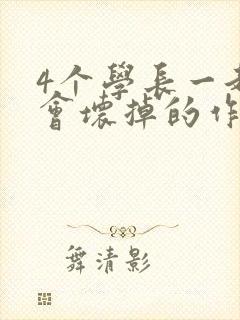 4个學長一
會壞掉的作
舞清影